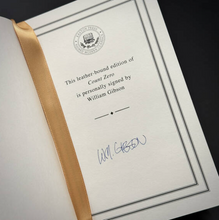 This leather-bound edition of
Count Zero
is personally signed by
William Gibson
Wm. GIBSON